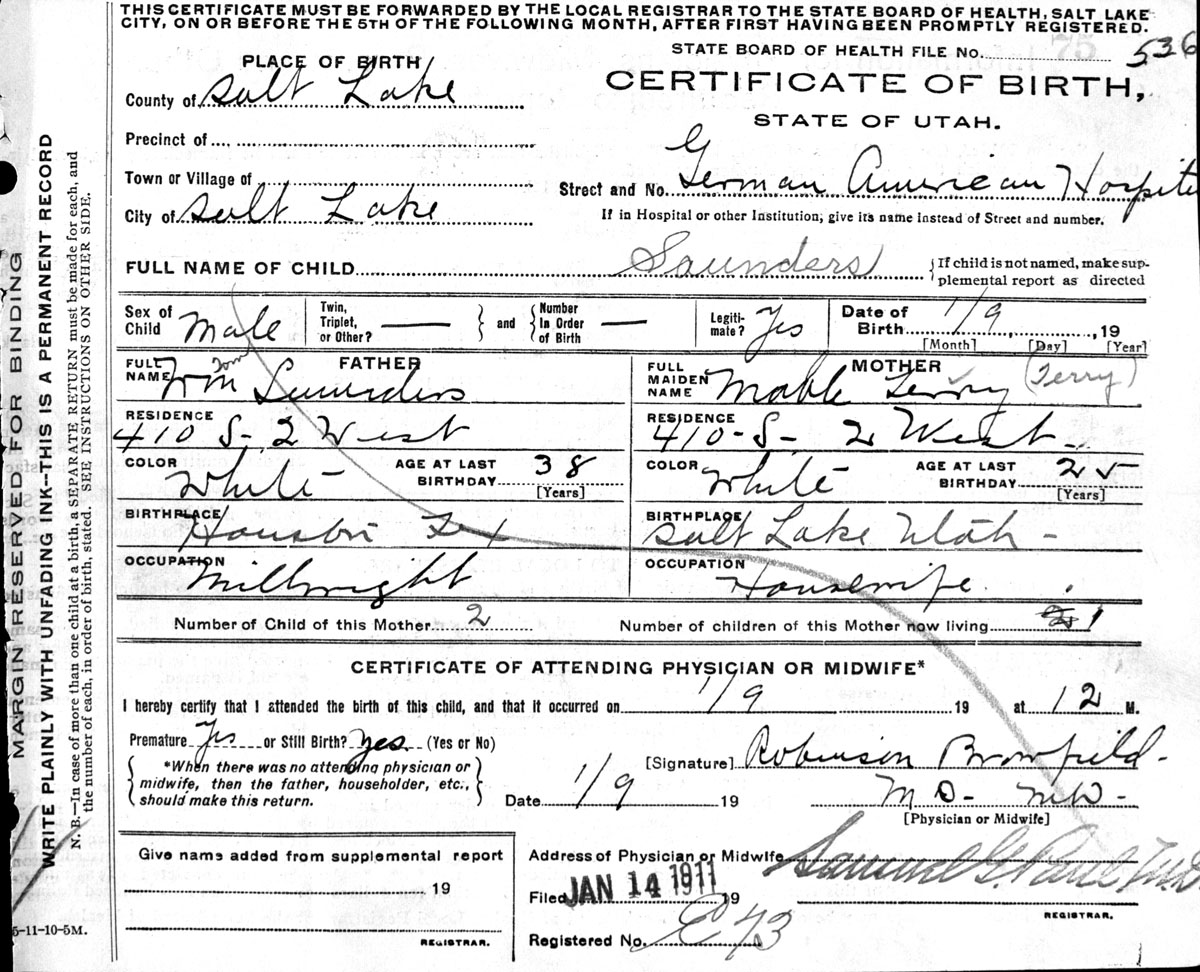 THIS CERTIFICATE MUST BE FORWARDED BY THE LOCAL REGISTRAR TO THE STATE BOARD OF HEALTH, SALT LAKE
CITY, ON OR BEFORE THE 5TH OF THE FOLLOWING MONTH, AFTER FIRST HAVING BEEN PROMPTLY REGISTERED.
STATE BOARD OF HEALTH FILE No. 536
PLACE OF BIRTH
CERTIFICATE OF BIRTH,
STATE OF UTAH.
County of Salt Lake
Precinct of
Town or Village of
City of Salt Lake
Street and No. German American Hospital
If in Hospital or other Institution, give its name instead of Street and number.
FULL NAME OF CHILD Saunders
If child is not named, make sup-
plemental report as directed
Sex of Child Male
Twin, Triplet, or Other? — and Number In Order of Birth —
Legiti-mate? Yes
Date of Birth 1/9, 19
[Month] [Day] [Year]
FATHER
FULL NAME Wm Tom Saunders
RESIDENCE 410 S- 2 West
COLOR White AGE AT LAST BIRTHDAY 38 [Years]
BIRTHPLACE Houston Tex
OCCUPATION Millwright
MOTHER
FULL MAIDEN NAME Mable Terry (Terry)
RESIDENCE 410-S- 2 West
COLOR White AGE AT LAST BIRTHDAY 25 [Years]
BIRTHPLACE Salt Lake Utah -
OCCUPATION Housewife
Number of Child of this Mother 2
Number of children of this Mother now living 1
CERTIFICATE OF ATTENDING PHYSICIAN OR MIDWIFE*
I hereby certify that I attended the birth of this child, and that it occurred on 1/9 19 at 12 M.
Premature Yes or Still Birth? Yes (Yes or No)
*When there was no attending physician or
midwife, then the father, householder, etc.,
should make this return.
[Signature] Robinson Brownfield-
Date 1/9 19
MD-
[Physician or Midwife]
Give name added from supplemental report
19
REGISTRAR.
Address of Physician or Midwife
Samuel G. Paul M.D.
REGISTRAR.
Filed JAN 14 1911 19
Registered No. E 73
5-11-10-5M.
MARGIN RESERVED FOR BINDING
WRITE PLAINLY WITH UNFADING INK--THIS IS A PERMANENT RECORD
N. B.—In case of more than one child at a birth, a SEPARATE RETURN must be made for each, and
the number of each, in order of birth, stated. SEE INSTRUCTIONS ON OTHER SIDE.